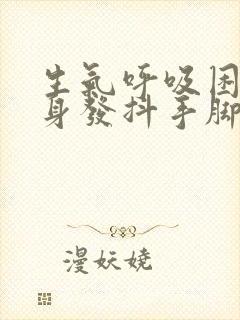 生氣呼吸困
身發抖手腳
漫妖嬈